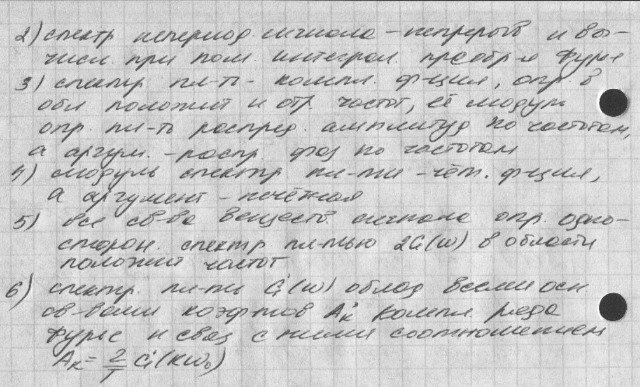 2) спектр непериод. сигнала - непрерывн и вы-
числ. при пом. интеграл. преобр-я Фурье
3) спектр пл-ть - компл. ф-ция, опр. в
обл положит и отр. частот, её модуль
опр. пл-ть распред. амплитуд по частотам,
а аргум. - распр. фаз по частотам
4) модуль спектр пл-ти - чёт. ф-ция,
а аргумент - нечётная
5) все св-ва веществ. сигнала опр. одно-
сторон. спектр пл-тью 2G(ω) в области
положит частот
6) спектр. пл-ть G(ω) облад всеми осн
св-вами коэф-тов Aₖ компл. ряда
Фурье и связ с ними соотношением
Aₖ = 2/T G(kω₀)